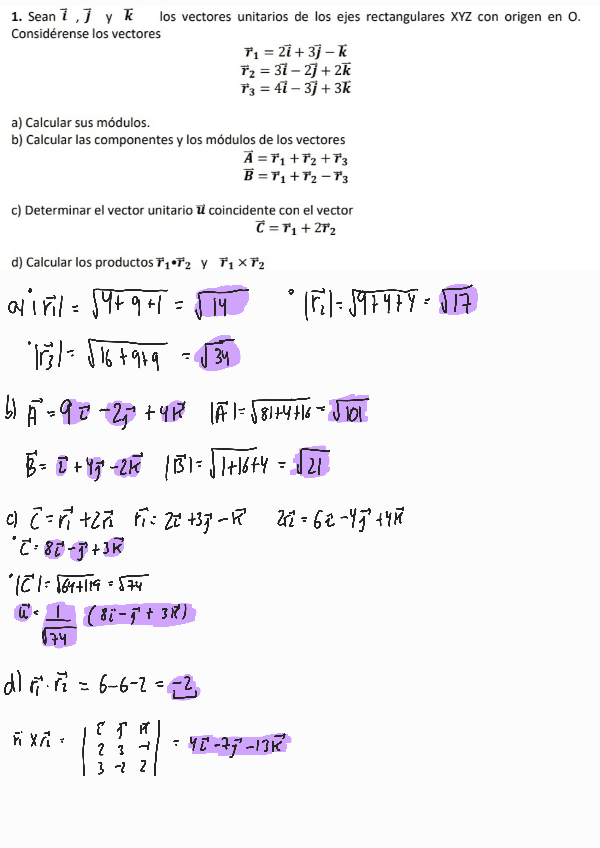 1. Sean i⃗ , j⃗ y k⃗ los vectores unitarios de los ejes rectangulares XYZ con origen en O.
Considérense los vectores
r⃗₁ = 2i⃗ + 3j⃗ − k⃗
r⃗₂ = 3i⃗ − 2j⃗ + 2k⃗
r⃗₃ = 4i⃗ − 3j⃗ + 3k⃗
a) Calcular sus módulos.
b) Calcular las componentes y los módulos de los vectores
A⃗ = r⃗₁ + r⃗₂ + r⃗₃
B⃗ = r⃗₁ + r⃗₂ − r⃗₃
c) Determinar el vector unitario u⃗ coincidente con el vector
C⃗ = r⃗₁ + 2r⃗₂
d) Calcular los productos r⃗₁•r⃗₂ y r⃗₁ × r⃗₂
a) • |r⃗₁| = √(4+9+1) = √14 • |r⃗₂| = √(9+4+4) = √17
• |r⃗₃| = √(16+9+9) = √34
b) A⃗ = 9i⃗ − 2j⃗ + 4k⃗ |A⃗| = √(81+4+16) = √101
B⃗ = i⃗ + 4j⃗ − 2k⃗ |B⃗| = √(1+16+4) = √21
c) C⃗ = r⃗₁ + 2r⃗₂ r⃗₁ = 2i⃗ + 3j⃗ − k⃗ 2r⃗₂ = 6i⃗ − 4j⃗ + 4k⃗
• C⃗ = 8i⃗ − j⃗ + 3k⃗
• |C⃗| = √(64+1+9) = √74
u⃗ = 1/√74 (8i⃗ − j⃗ + 3k⃗)
d) r⃗₁ · r⃗₂ = 6−6−2 = −2
r⃗₁ × r⃗₂ = | i⃗ j⃗ k⃗ |
| 2 3 −1 | = 4i⃗ − 7j⃗ − 13k⃗
| 3 −2 2 |